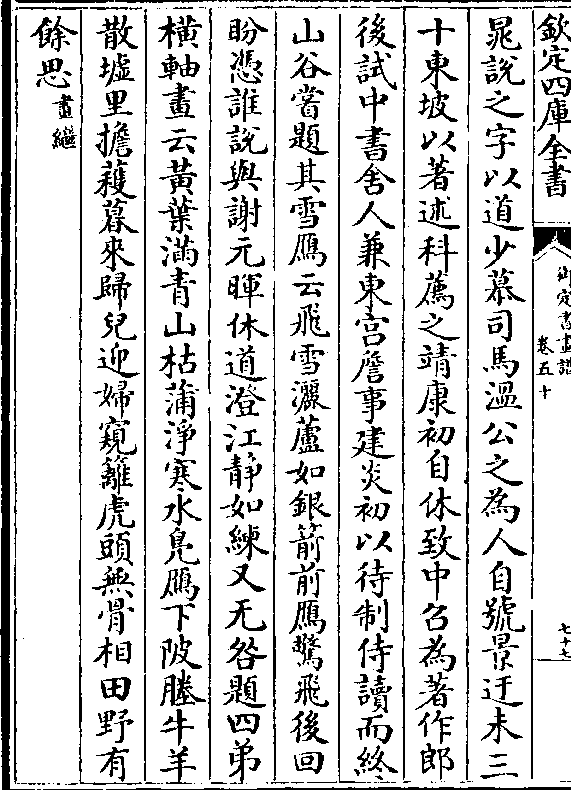 欽定四庫全書
御定書畫譜
卷五十
七十七
晁說之字以道少慕司馬溫公之為人自號景迂未三
十東坡以著述科薦之靖康初自休致中召為著作郎
後試中書舍人兼東宮詹事建炎初以待制侍讀而終
山谷嘗題其雪鴈云飛雪灑蘆如銀箭前鴈驚飛後回
盼憑誰說與謝元暉休道澄江静如練又无咎題四弟
橫軸畫云黃葉滿青山枯蒲淨寒水鳧鴈下陂塍牛羊
散墟里擔穫暮來歸兒迎婦窺籬虎頭無骨相田野有
餘思畫繼